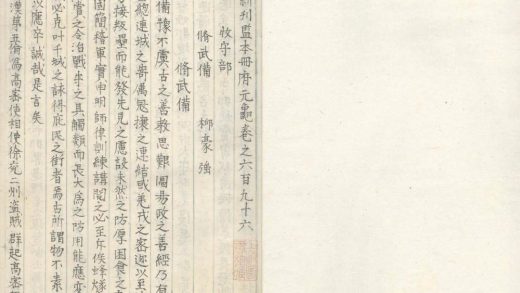 新刊監本冊府元龜卷之六百九十六
牧守部
脩武備　抑豪強
脩武備
備豫不虞古之善教思難圖易政之善經乃有
緫連城之寄偶寇攘之連結或羌戎之密邇以至
接壘而能發先見之慮設未然之防厚固食之
國簡稽軍實申明師律訓練講閱之必至斥候烽燧
嘗之令治戰守之具觸類而長大為之防用能應變
必克叶干城之詠得庇民之術者焉古所謂物不素
以應卒誠哉是言矣
漢倫為高密使相使徐兗二州盜賊群起高密